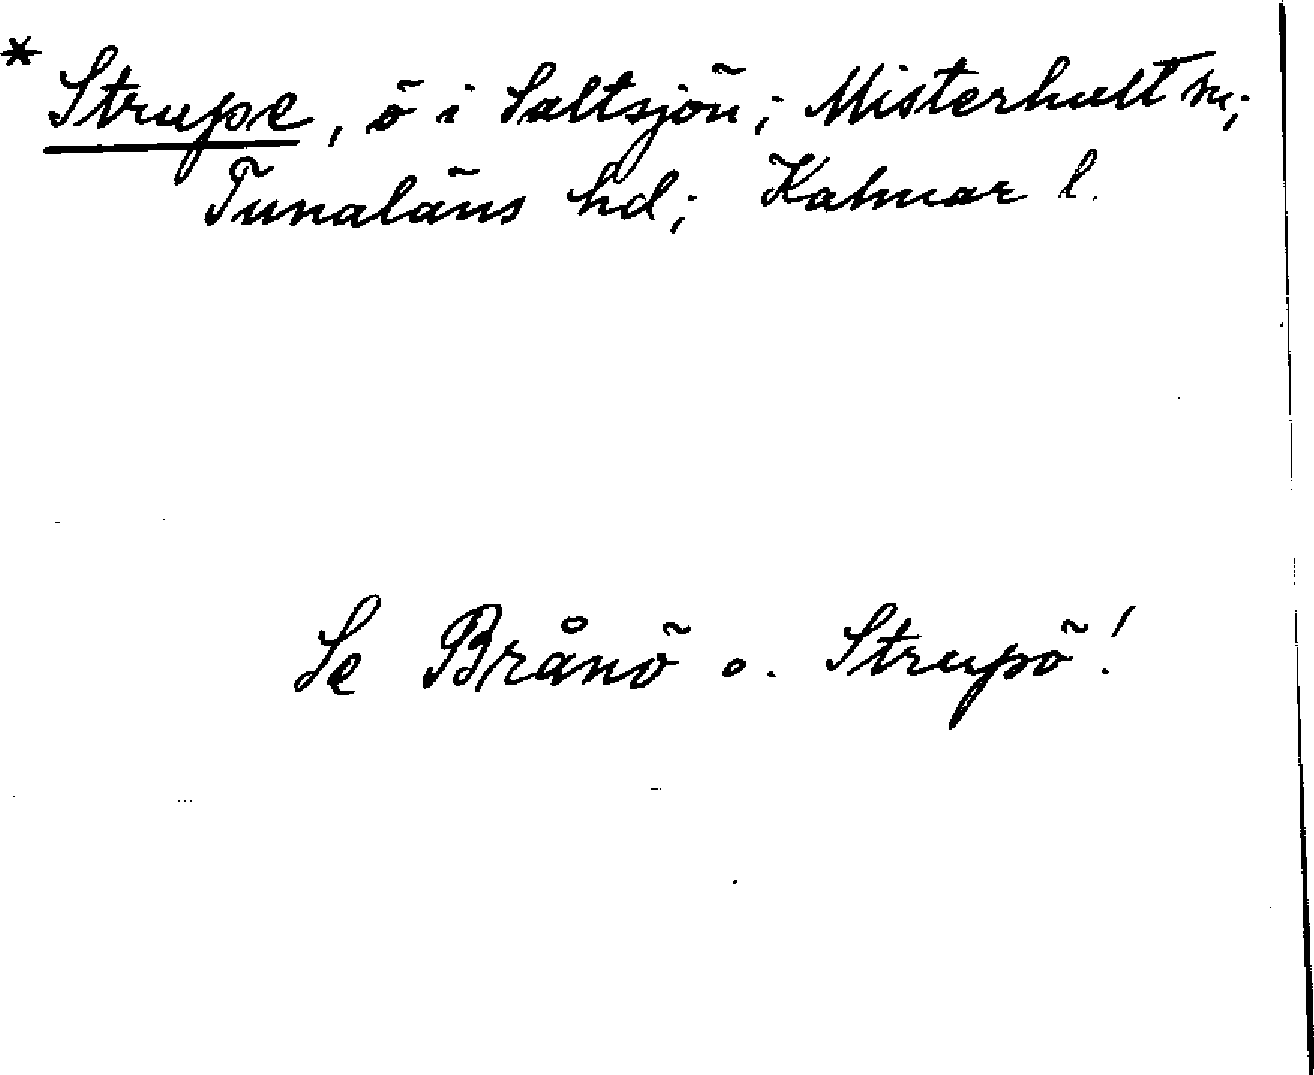 * Strupe, ö i Saltsjön; Misterhult sn;
Tunaläns hd; Kalmar l.
Se Brånö o. Strupö!